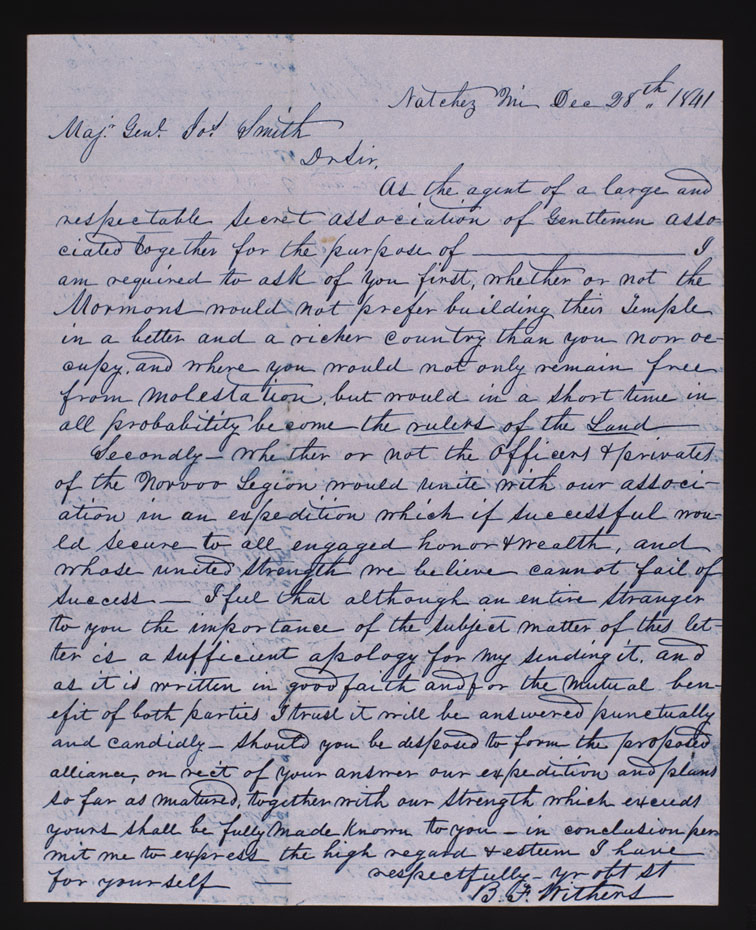 Natchez Mi Dec 28th 1841
Maj. Genl. Jos. Smith
Dr Sir,
As the agent of a large and
respectable secret association of Gentlemen asso-
ciated together for the purpose of ———— I
am required to ask of you first, whether or not the
Mormons would not prefer building their Temple
in a better and a richer country than you now oc-
cupy, and where you would not only remain free
from molestation, but would in a short time in
all probability become the rulers of the Land
Secondly – whether or not the Officers & privates
of the Norvoo Legion would unite with our associ-
ation in an expedition which if successful wou-
ld secure to all engaged honor & wealth, and
whose united strength we believe cannot fail of
success — I feel that although an entire stranger
to you the importance of the subject matter of this let-
ter is a sufficient apology for my sending it, and
as it is written in good faith and for the mutual ben-
efit of both parties I trust it will be answered punctually
and candidly – should you be disposed to form the proposed
alliance, on rect of your answer our expedition and plans
so far as matured, together with our strength which exceeds
yours shall be fully made known to you – in conclusion per
mit me to express the high regard & esteem I have
for yourself — respectfully – yr obt st
B. F. Withers